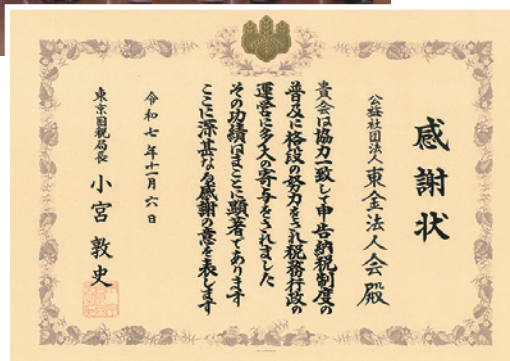 感謝状
公益社団法人東金法人会殿
貴会は協力一致して申告納税制度の
普及に格段の努力をされ税務行政の
運営に多大の寄与をされました
その功績はまことに顕著であります
ここに深甚なる感謝の意を表します
令和七年十一月六日
東京国税局長 小宮敦史